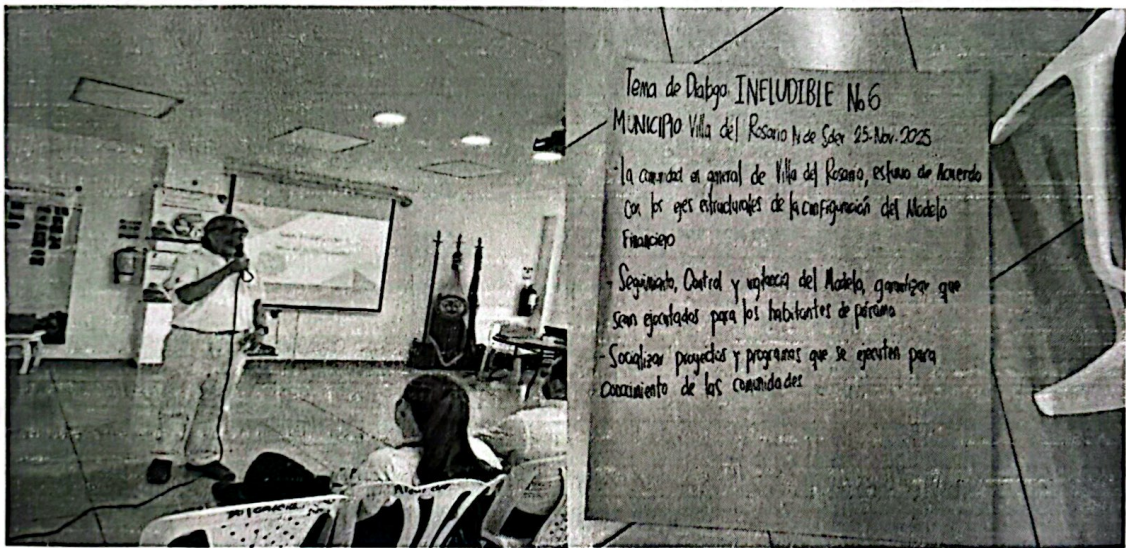 Tema de Dialogo INELUDIBLE No 6
MUNICIPIO Villa del Rosario N de Sder 25-Nov-2025
- la comunidad en general de Villa del Rosario, estuvo de Acuerdo
con los ejes estructurales de la configuración del Modelo
Financiero
- Seguimiento, Control y vigilancia del Modelo, garantizar que
sean ejecutados para los habitantes de páramo
- Socializar proyectos y programas que se ejecuten para
conocimiento de las comunidades